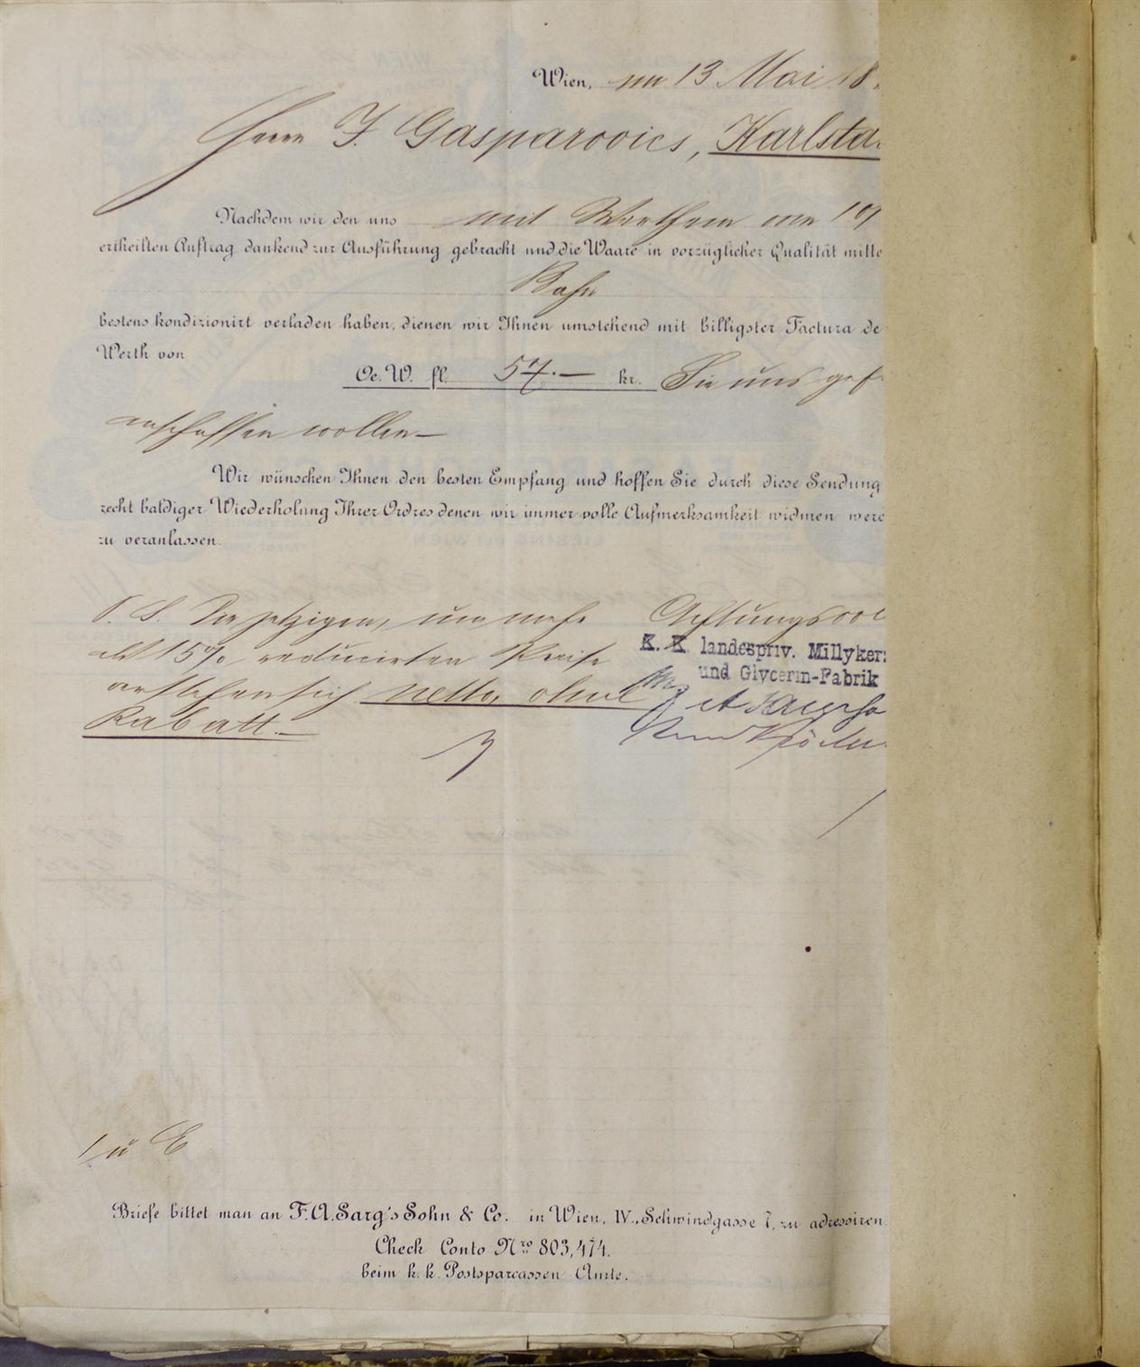 Wien, am 13 Mai 18
Herrn F. Gasparovics, Karlsta
Nachdem wir den uns mit Werthem vom 10
ertheilten Auftrag dankend zur Ausführung gebracht und die Waare in vorzüglicher Qualität mitte
Bahn
bestens kondizionirt verladen haben, dienen wir Ihnen umstehend mit billigster Factura de
Werth von
Oe. W. fl. 57.— kr. Sie uns gef
anschaffen wollen—
Wir wünschen Ihnen den besten Empfang und hoffen Sie durch diese Sendung
recht baldiger Wiederholung Ihrer Ordres denen wir immer volle Aufmerksamkeit widmen werd
zu veranlassen.
P. S. Die jetzigen, um mehr
als 15% reducirten Preise
verstehen sich netto, ohne
Rabatt.—
Achtungsvol
K. K. landespriv. Millyker
und Glycerin-Fabrik
Briefe bittet man an F. A. Sarg's Sohn & Co. in Wien, IV., Schwindgasse 7, zu adressiren
Check Conto Nro 803,474.
beim k. k. Postsparcassen Amte.